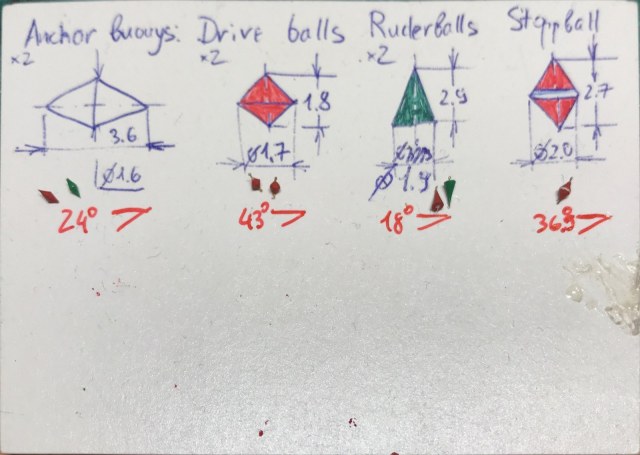 Anchor Buouys: Drive balls Ruderballs Stoppball
×2 ×2 ×2
1.8 2.9 2.7
3.6
Ø1.7 Ø2.0
Ø1.6 Ø 1.9
24° 43° 18° 36.9